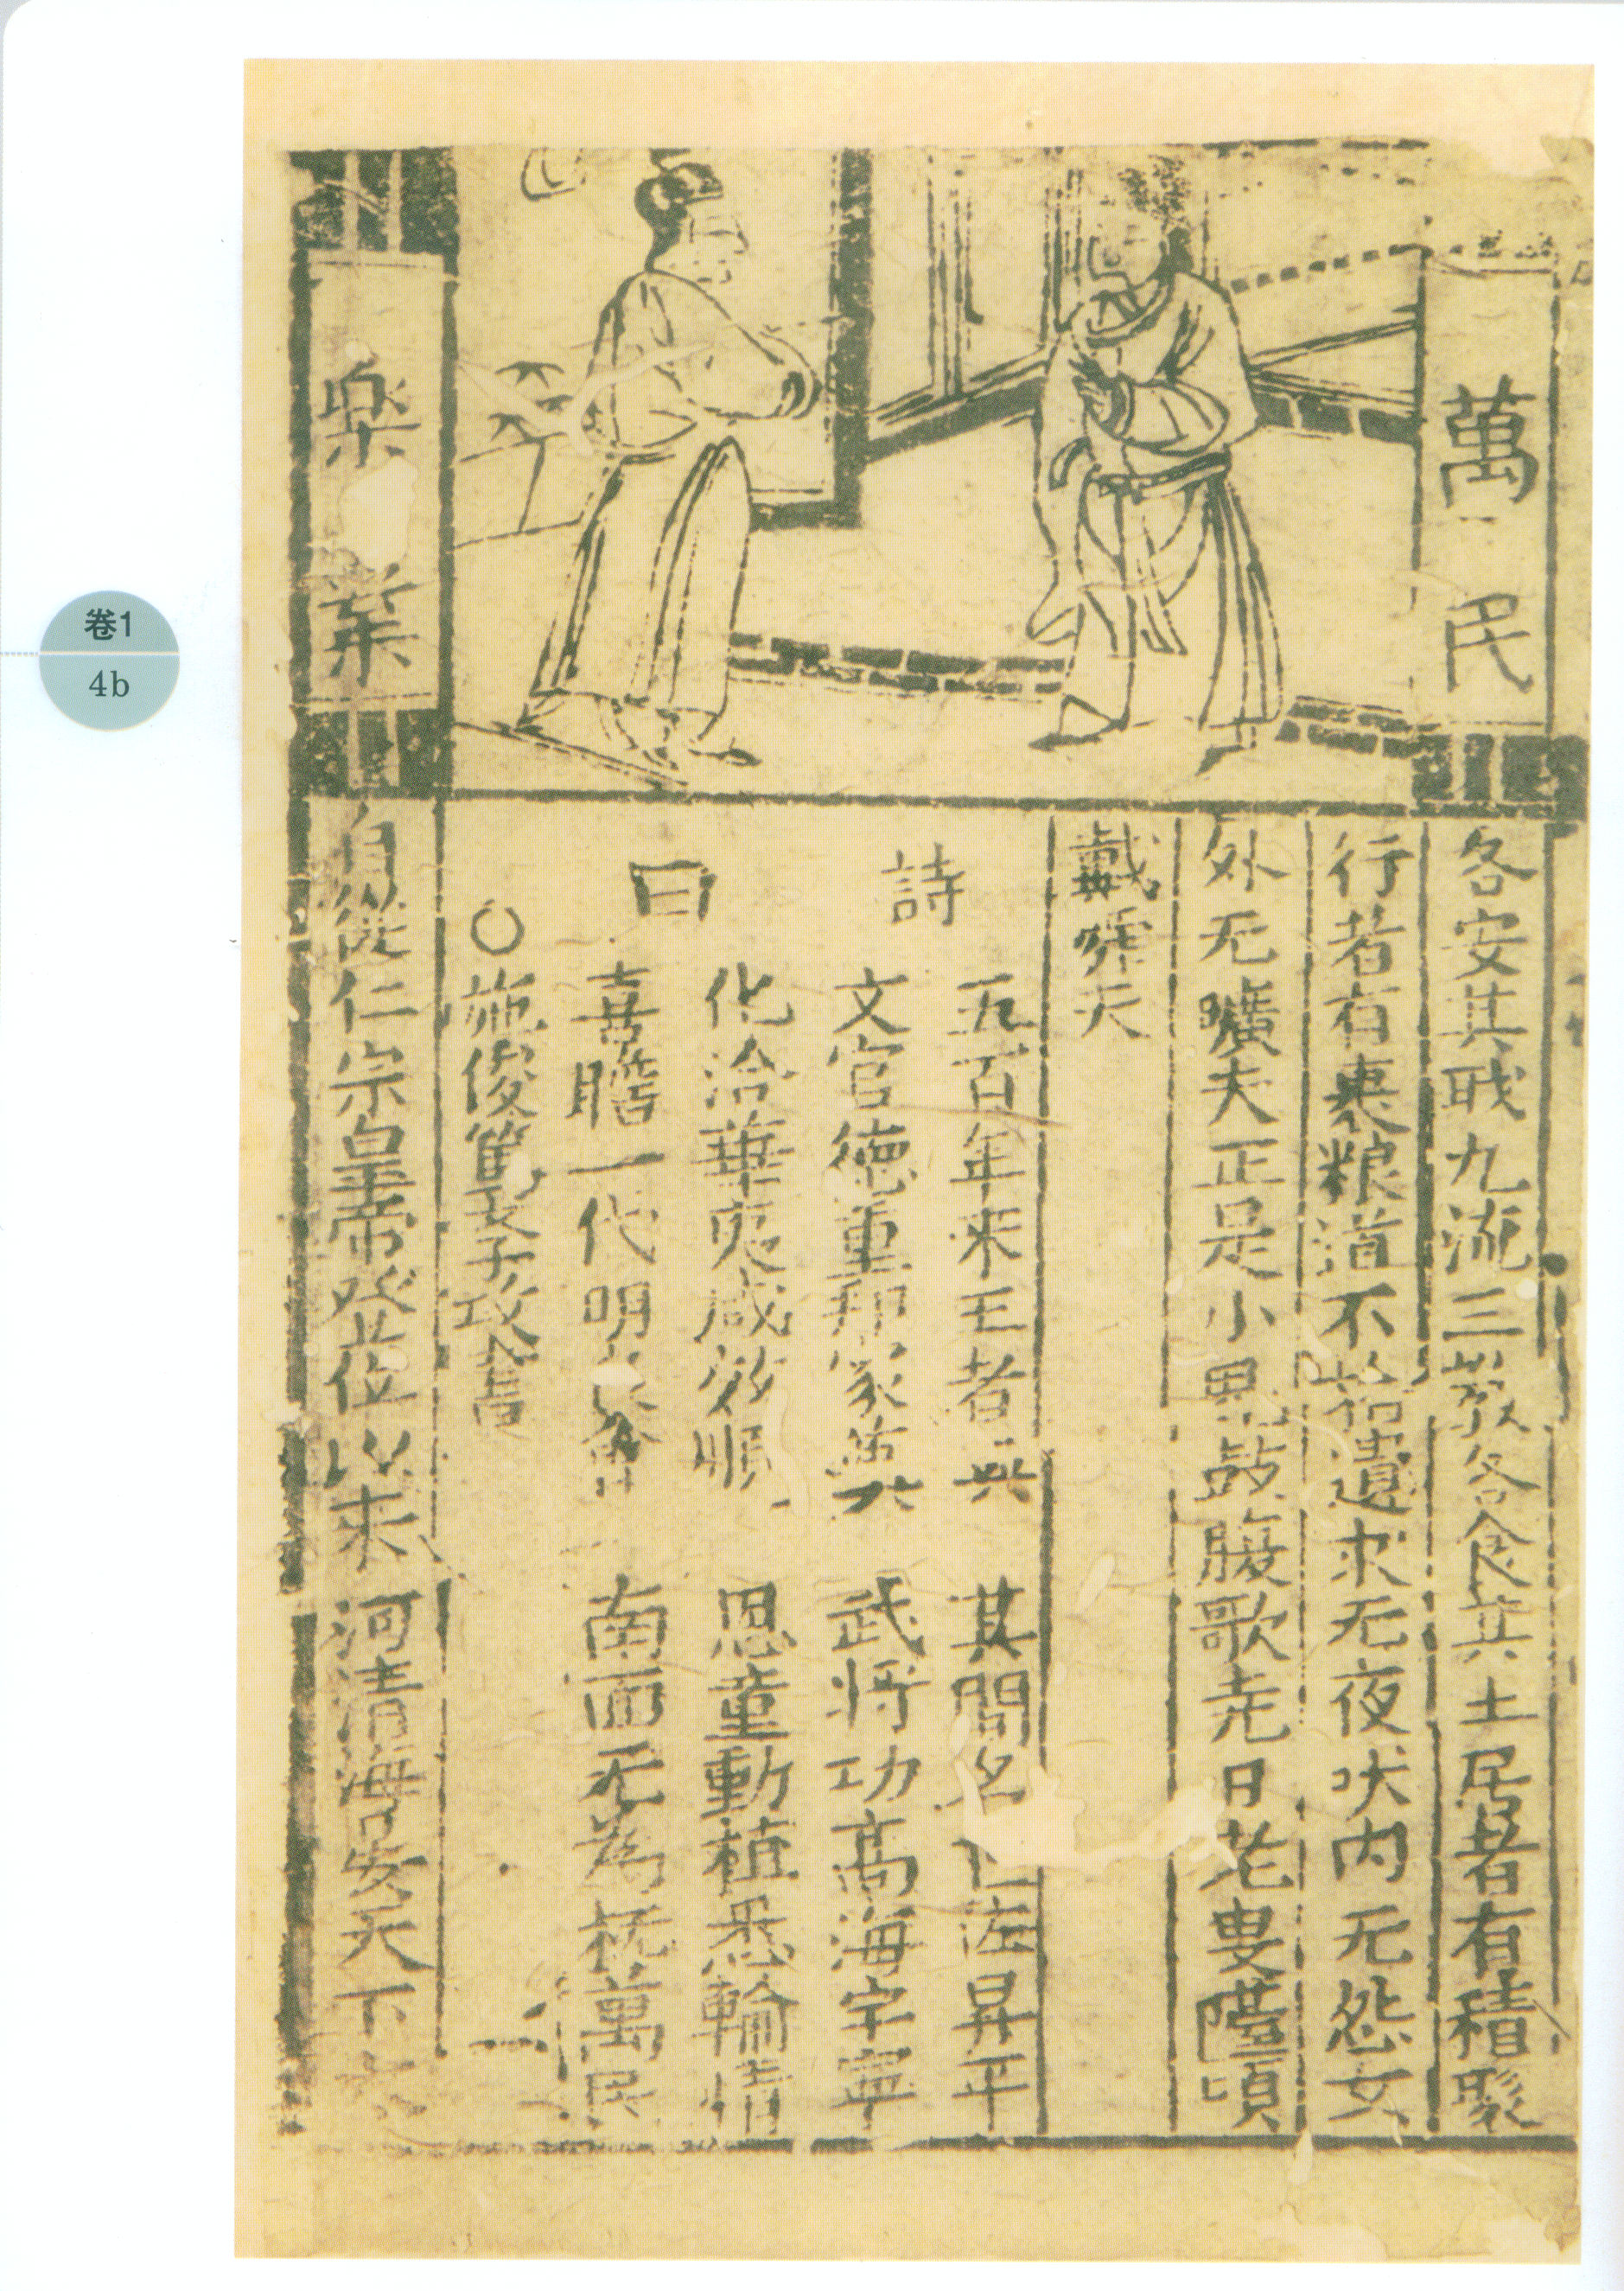 卷1
4b
萬民
樂業
各安其職九流三教各食其土居者有積聚
行者有裹粮道不拾遺戍无夜吠内无怨女
外无曠夫正是小児鼓腹歌尭日老叟擡頭
戴舜天
詩曰
五百年来王者興 其間名 佐昇平
文官德重邦家 武将功高海宇寧
化洽華夷咸效順 恩童動植悉輸情
喜瞻一代明 南面无為撫萬民
○施俊篤志攻書
自従仁宗皇帝登位以来河清海晏天下